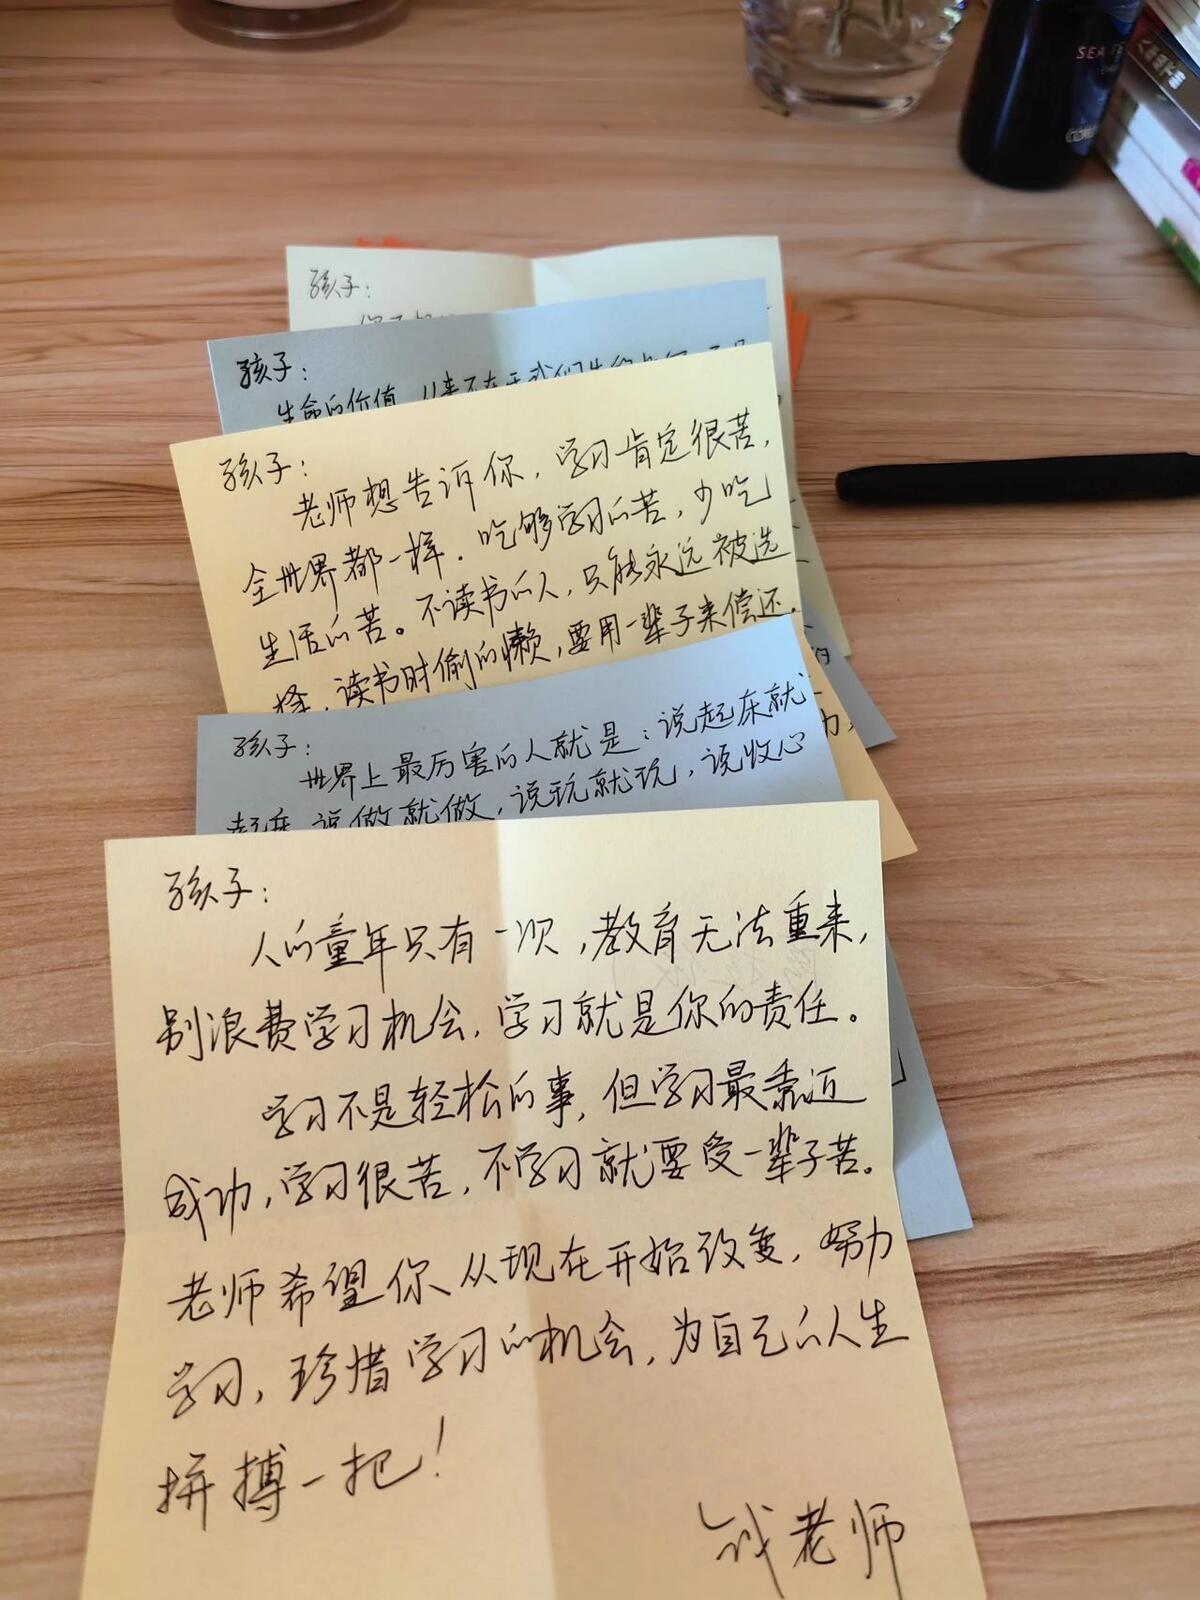 孩子：
孩子：
生命的价值，从来不在于我们
孩子：
老师想告诉你，学习肯定很苦，
全世界都一样．吃够学习的苦，少吃
生活的苦。不读书的人，只能永远被选
择，读书时偷的懒，要用一辈子来偿还．
孩子：
世界上最厉害的人就是：说起床就
起床，说做就做，说玩就玩，说收心
孩子：
人的童年只有一次，教育无法重来，
别浪费学习机会，学习就是你的责任。
学习不是轻松的事，但学习最靠近
成功，学习很苦，不学习就要受一辈子苦。
老师希望你从现在开始改变，努力
学习，珍惜学习的机会，为自己的人生
拼搏一把！
钱老师
SEA